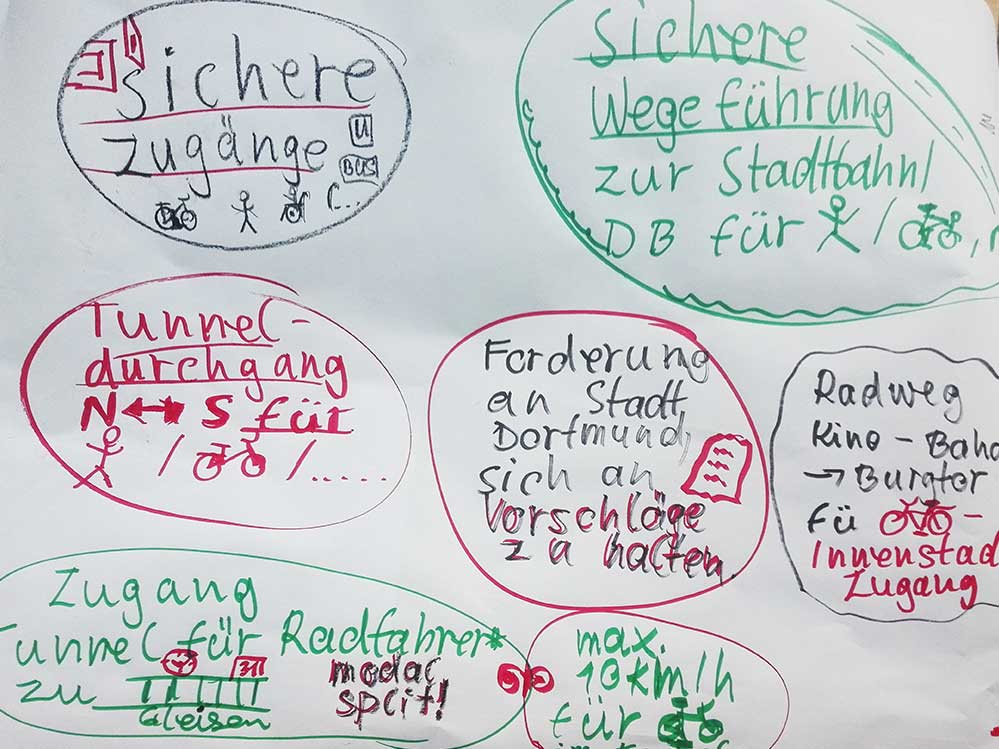 sichere
zugänge
U
BUS
(...
sichere
Wegeführung
zur Stadtbahn/
DB für / ,
Tunnel-
durchgang
N ↔ S für
/ / .....
Forderung
an Stadt
Dortmund,
sich an
Vorschläge
zu halten.
Radweg
Kino - Bahn
→ Burgtor
fü -
Innenstad
Zugang
Zugang
Tunnel für Radfahrer*
zu
Gleisen
modal
split!
max.
10 km/h
für